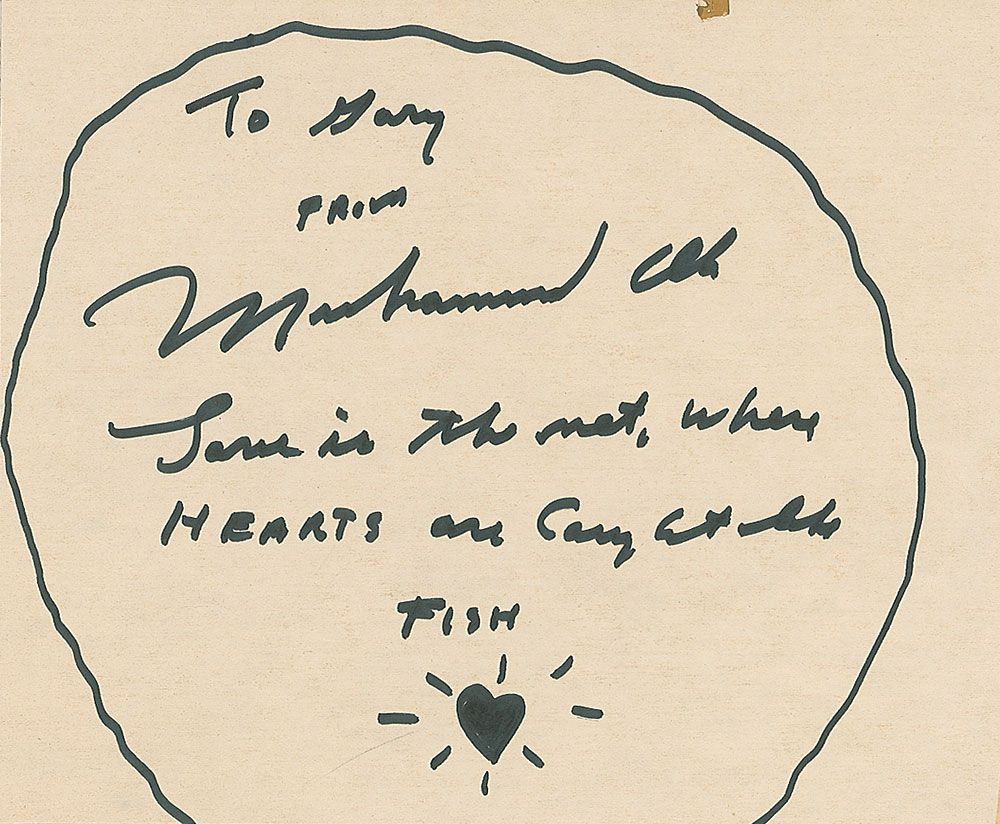 To Gary
FROM
Muhammad Ali
Love is the net, where
HEARTS are Caught like
FISH